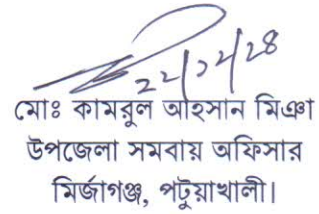 ২২/১২/২৪
মোঃ কামরুল আহসান মিঞা
উপজেলা সমবায় অফিসার
মির্জাগঞ্জ, পটুয়াখালী।